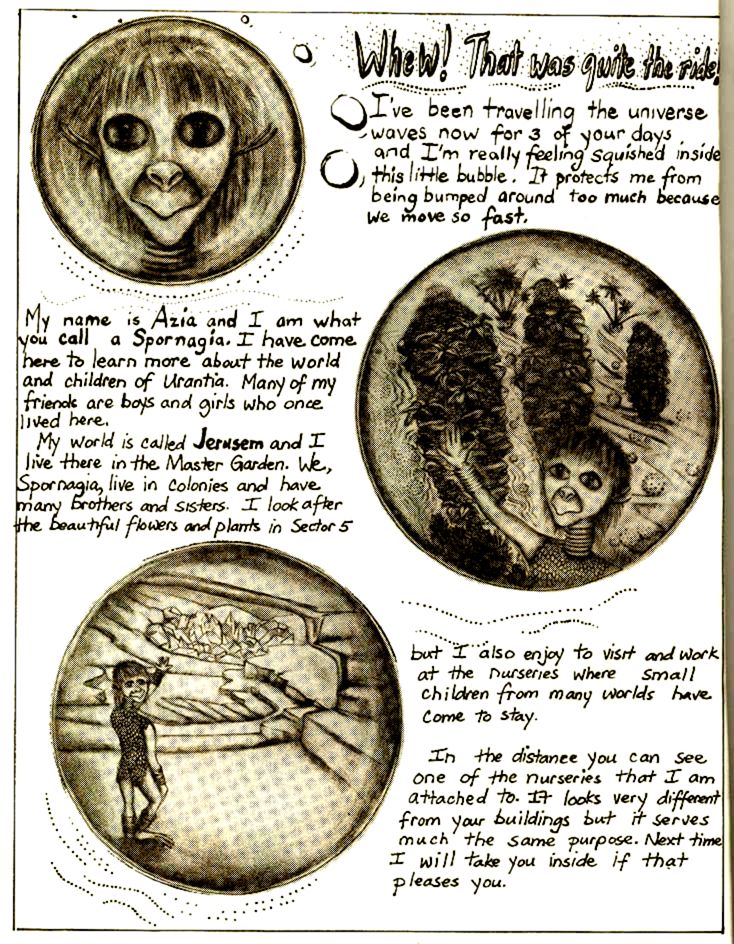 Whew! That was quite the ride!
I've been travelling the universe
waves now for 3 of your days
and I'm really feeling squished inside
this little bubble. It protects me from
being bumped around too much because
we move so fast.
My name is Azia and I am what
you call a Spornagia. I have come
here to learn more about the world
and children of Urantia. Many of my
friends are boys and girls who once
lived here.
My world is called Jerusem and I
live there in the Master Garden. We,
Spornagia, live in colonies and have
many brothers and sisters. I look after
the beautiful flowers and plants in Sector 5
but I also enjoy to visit and work
at the nurseries where small
children from many worlds have
come to stay.
In the distance you can see
one of the nurseries that I am
attached to. It looks very different
from your buildings but it serves
much the same purpose. Next time
I will take you inside if that
pleases you.